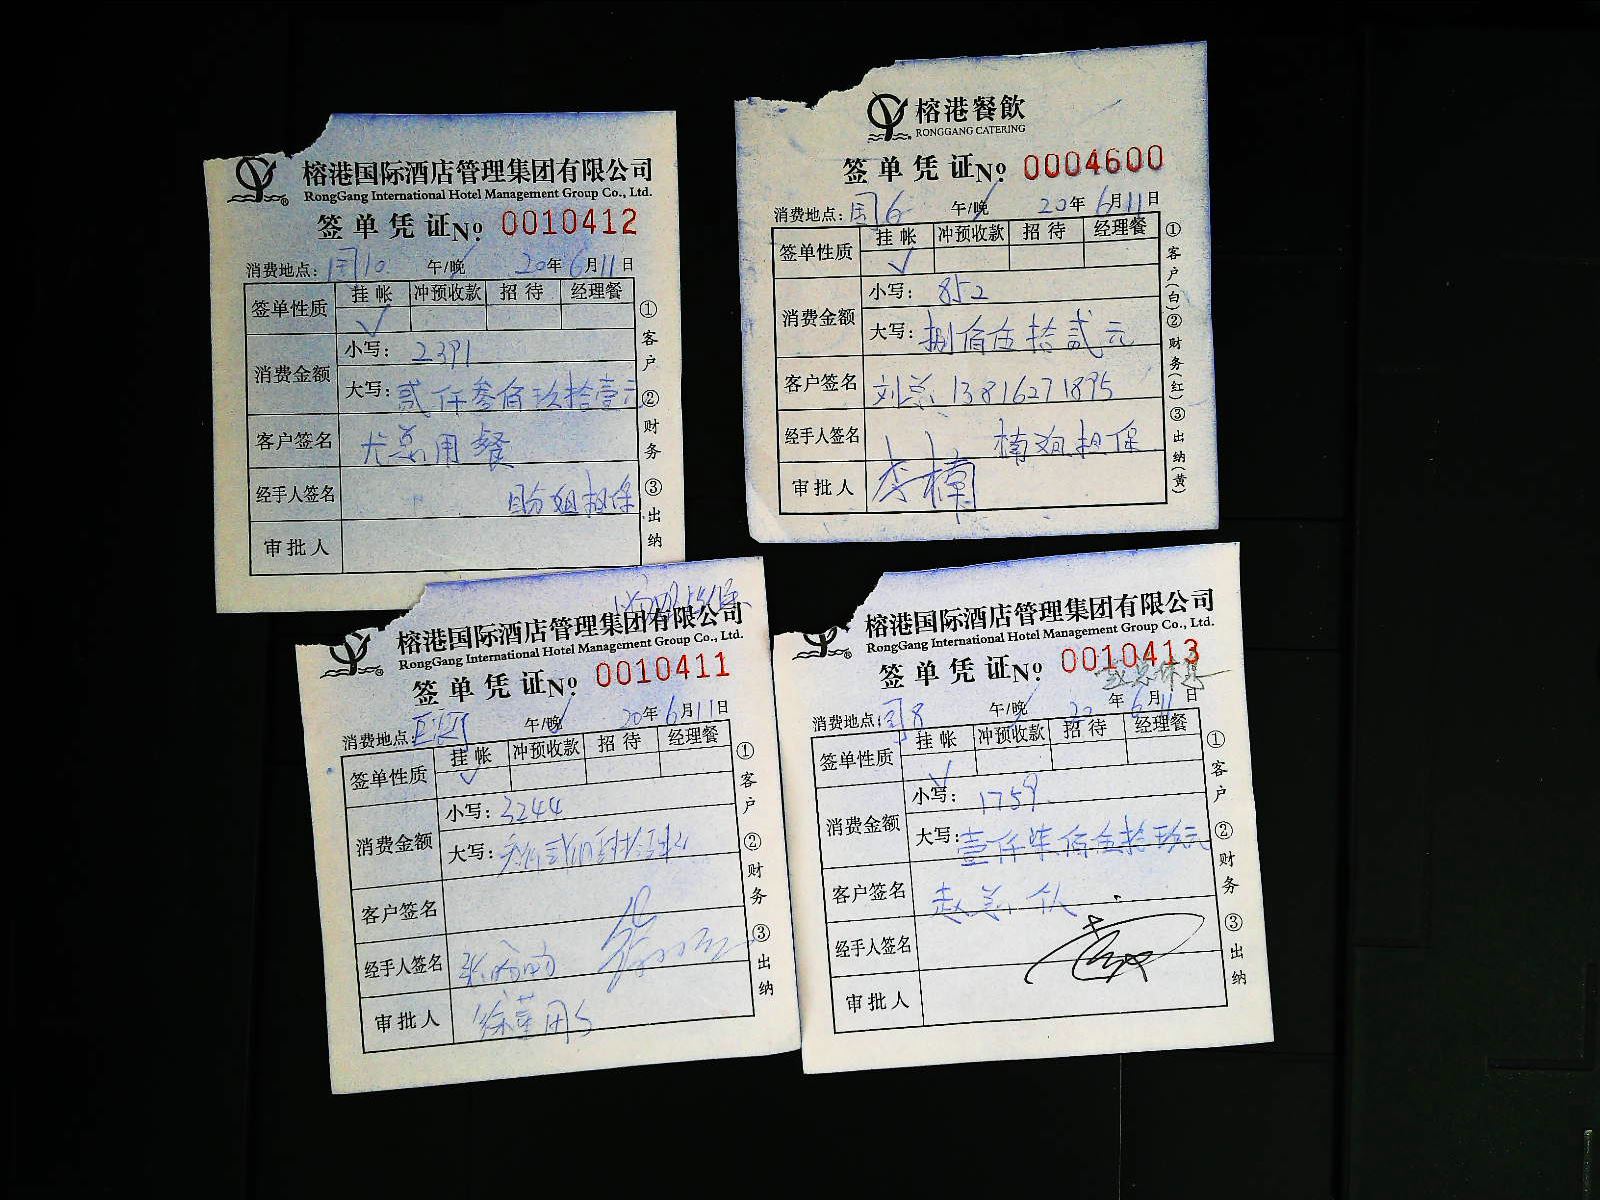 榕港国际酒店管理集团有限公司
RongGang International Hotel Management Group Co., Ltd.
签单凭证No. 0010412
消费地点: 10 午/晚 20年6月11日
签单性质 挂帐 冲预收款 招待 经理餐
消费金额 小写: 2391
大写: 贰仟叁佰玖拾壹元
客户签名 尤总用餐
经手人签名 盼姐担保
审批人
①客户 ②财务 ③出纳
榕港餐飲
RONGGANG CATERING
签单凭证No. 0004600
消费地点: 6 午/晚 20年6月11日
签单性质 挂帐 冲预收款 招待 经理餐
消费金额 小写: 852
大写: 捌佰伍拾贰元
客户签名 刘总 13816271895
经手人签名 楠姐担保
审批人 李楠
①客户(白) ②财务(红) ③出纳(黄)
榕港国际酒店管理集团有限公司
RongGang International Hotel Management Group Co., Ltd.
签单凭证No. 0010411
消费地点: 午/晚 20年6月11日
签单性质 挂帐 冲预收款 招待 经理餐
消费金额 小写: 3244
大写:
客户签名
经手人签名
审批人
①客户 ②财务 ③出纳
榕港国际酒店管理集团有限公司
RongGang International Hotel Management Group Co., Ltd.
签单凭证No. 0010413
消费地点: 8 午/晚 20年6月11日
签单性质 挂帐 冲预收款 招待 经理餐
消费金额 小写: 1759
大写: 壹仟柒佰伍拾玖元
客户签名 赵总
经手人签名
审批人
①客户 ②财务 ③出纳